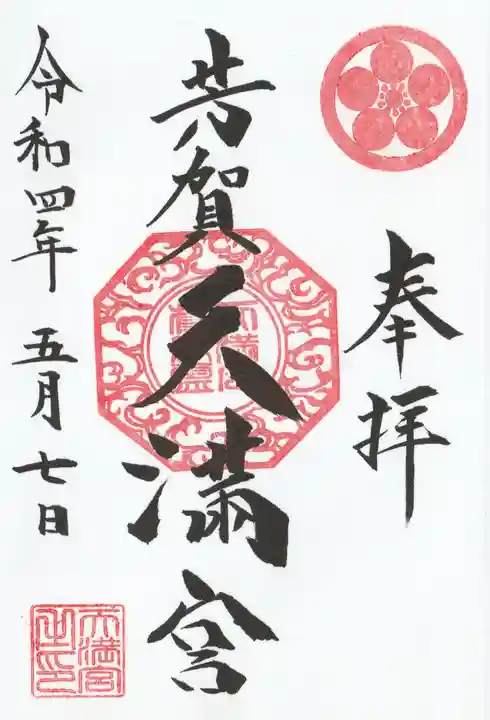 奉拝
芳賀天満宮
令和四年 五月七日
天満宮
之印